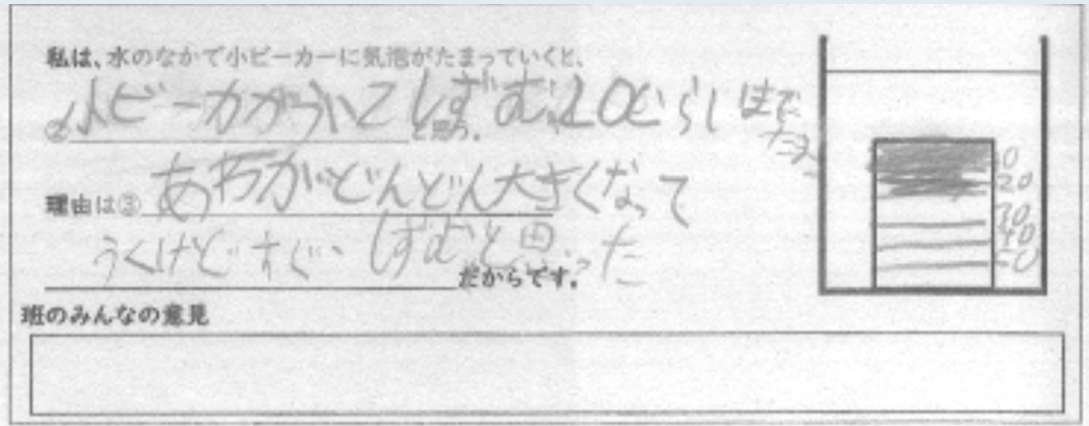 私は、水のなかで小ビーカーに気泡がたまっていくと、
②小ビーカがういてしずむ。20ぐらいまで
と思う。
理由は③あわがどんどん大きくなって
うくけどすぐ、しずむと思った
だからです。
10
20
30
40
50
班のみんなの意見